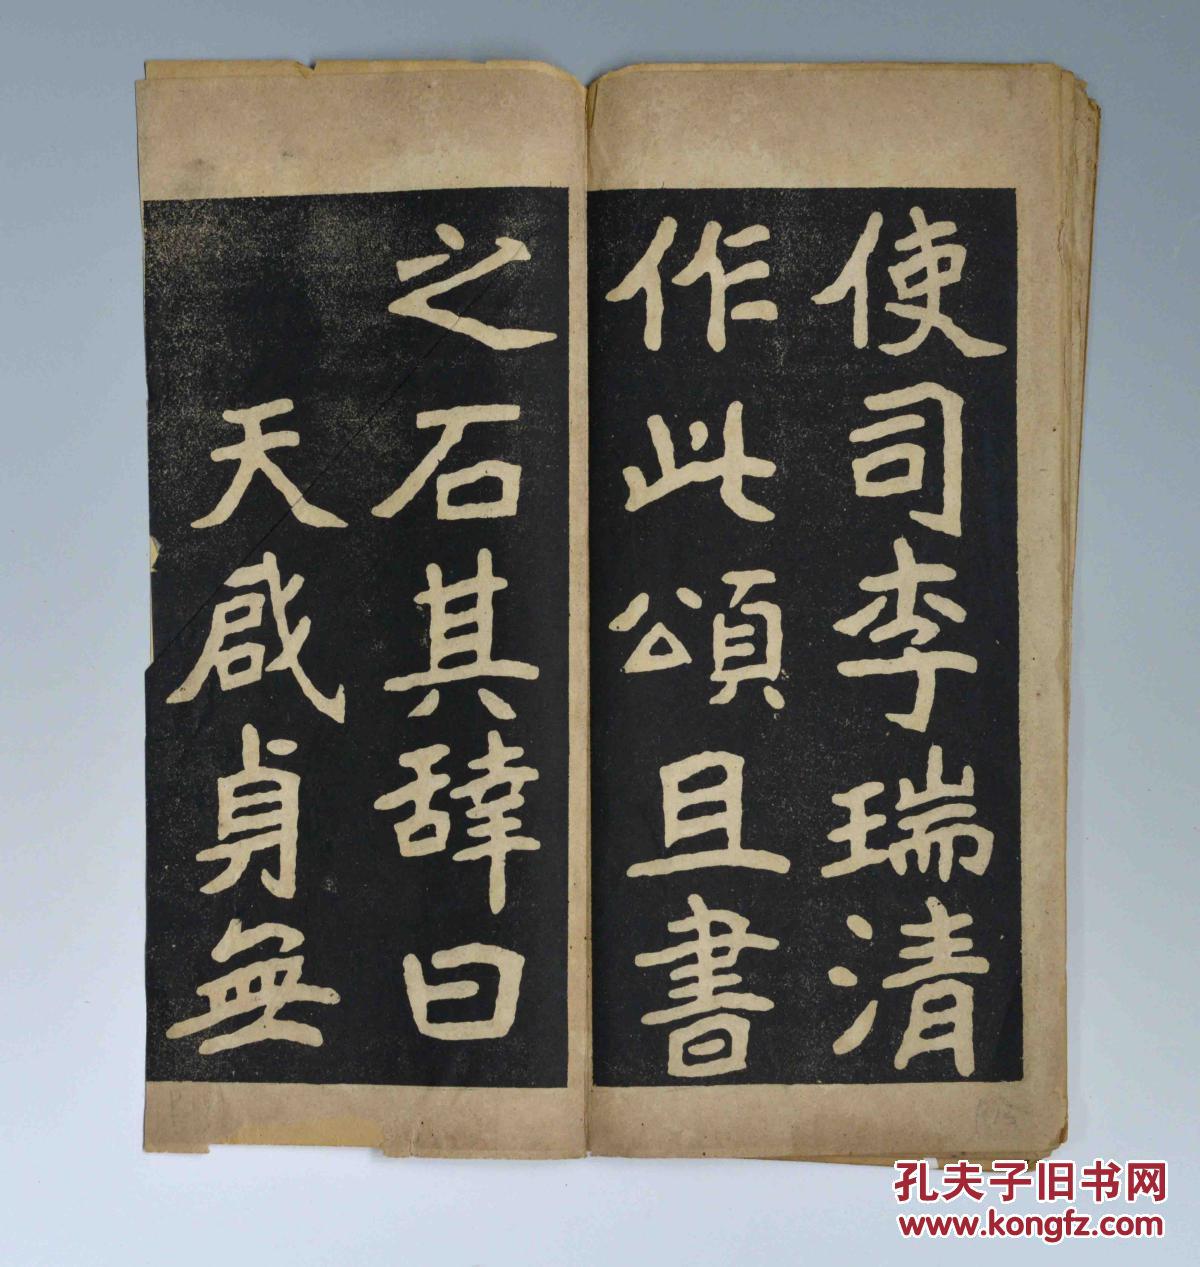 使司李瑞清
作此頌且書
之石其辞曰
天啟貞無
孔夫子旧书网
www.kongfz.com